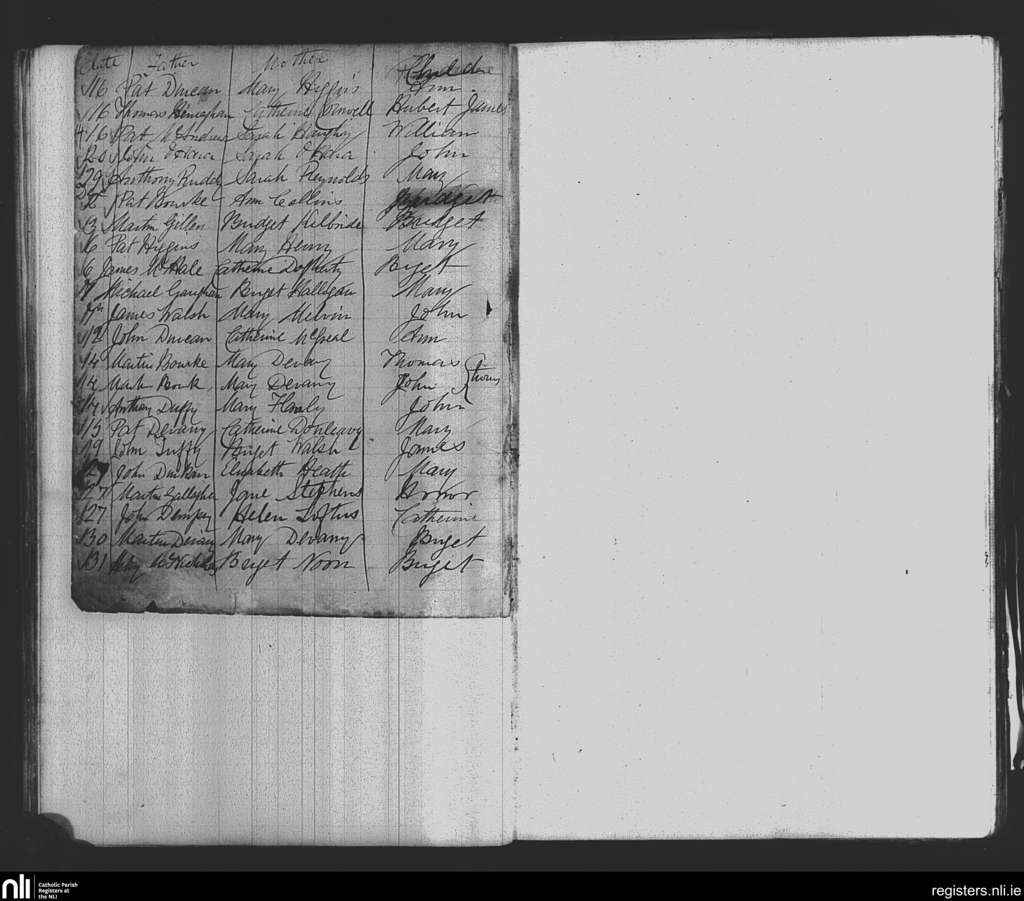 Date Father Mother Children
16 Pat Duncan Mary Higgins Ann
16 Thomas Heneghan Catherine Hubert James
16 Pat McAndrew Sarah Haughy William
20 John O'Hara Sarah O'Hara John
29 Anthony Ruddy Sarah Reynolds Mary
2 Pat Bourke Ann Collins Bridget
3 Martin Gillen Bridget Kilbride Bridget
6 Pat Higgins Mary Henry Mary
6 James McHale Catherine Dogherty Briget
7 Michael Gaughan Briget Halligan Mary
7th James Walsh Mary Melvin John
12 John Duncan Catherine McGreal Ann
14 Martin Bourke Mary Devany Thomas
14 Martin Bourk Mary Devany John
14 Anthony Duffy Mary Hanly John
15 Pat Devany Catherine Donleavy Mary
19 John Tuffy Briget Walsh James
John Dunkan Elizabeth Heath Mary
27 Martin Gallagher Jane Stephens Honor
27 John Dempsy Helen Loftus Catherine
30 Martin Devany Mary Devany Briget
31 McNicholas Briget Noon Briget
nli
Catholic Parish
Registers at
the NLI
registers.nli.ie